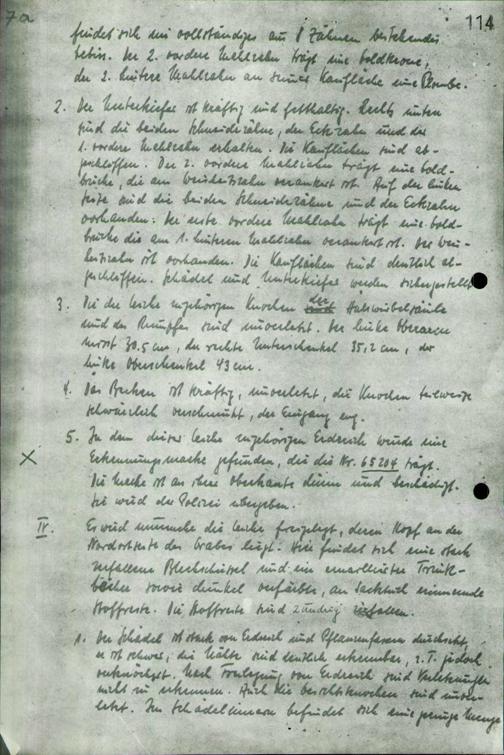 7a
114
findet sich ein vollständiges aus 8 Zähnen bestehendes
Gebiss. Der 2. vordere Mahlzahn trägt eine Goldkrone,
der 2. hintere Mahlzahn an seiner Kaufläche eine Plombe.
2. Der Unterkiefer ist kräftig und fetthaltig. Rechts unten
sind die beiden Schneidezähne, der Eckzahn und der
1. vordere Mahlzahn erhalten. Die Kauflächen sind ab-
geschliffen. Der 2. vordere Mahlzahn trägt eine Gold-
brücke, die am Weisheitszahn verankert ist. Auf der linken
Seite sind die beiden Schneidezähne und der Eckzahn
vorhanden: Der erste vordere Mahlzahn trägt eine Gold-
brücke die am 1. hinteren Mahlzahn verankert ist. Der Weis-
heitszahn ist vorhanden. Die Kauflächen sind deutlich ab-
geschliffen. Schädel und Unterkiefer werden sichergestellt
3. Die der Leiche zugehörigen Knochen der Halswirbelsäule
und des Rumpfes sind unverletzt. Der linke Oberarm
misst 30.5 cm, der rechte Unterschenkel 35,2 cm, der
linke Oberschenkel 43 cm.
4. Das Becken ist kräftig, unverletzt, die Knochen teilweise
schwärzlich verschmutzt, der Eingang eng.
5. In dem dieser Leiche zugehörigen Erdreich wurde eine
Erkennungsmarke gefunden, die die Nr. 65204 trägt.
Die Marke ist an ihrer Oberkante dünn und beschädigt.
Sie wird der Polizei übergeben.
IV. Es wird nunmehr die Leiche freigelegt, deren Kopf an der
Nordostseite des Grabes liegt. Hier findet sich eine stark
verfallene Blechschüssel und ein emaillierter Trink-
becher sowie dunkel verfärbte, an Sacktuch erinnernde
Stoffreste. Die Stoffreste sind zundrig zerfallen.
1. Der Schädel ist stark von Erdreich und Pflanzenfasern durchsetzt,
er ist schwer, die Nähte sind deutlich erkennbar, z. T. jedoch
verknöchert. Nach Freilegung von Erdreich sind Verletzungen
nicht zu erkennen. Auch die Gesichtsknochen sind unver-
letzt. Im Schädelinnern befindet sich eine geringe Menge